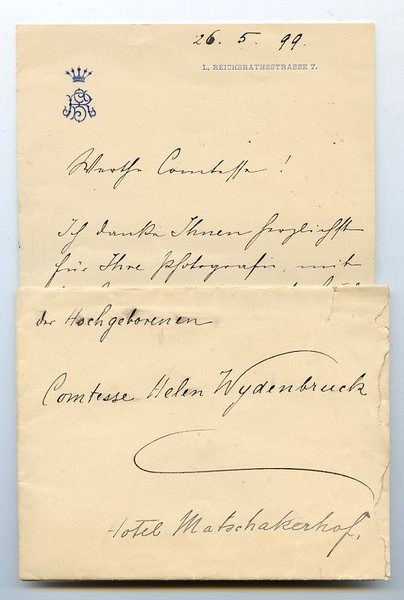 26. 5. 99.
I., REICHSRATHSSTRASSE 7.
Werthe Comtesse!
Ich danke Ihnen herzlichst
für Ihre Photografie, mit
der Hochgeborenen
Comtesse Helen Wydenbruck
Hotel Matschakerhof.